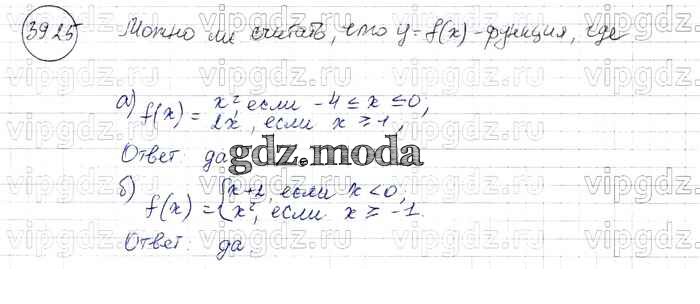 39.25 Можно ли считать, что y = f(x) - функция, где
а) f(x) = x², если -4 ≤ x ≤ 0,
2x, если x ≥ 1,
Ответ: да
gdz.moda
б) f(x) = { x+2, если x < 0,
x², если x ≥ -1.
Ответ: да.
vipgdz.ru